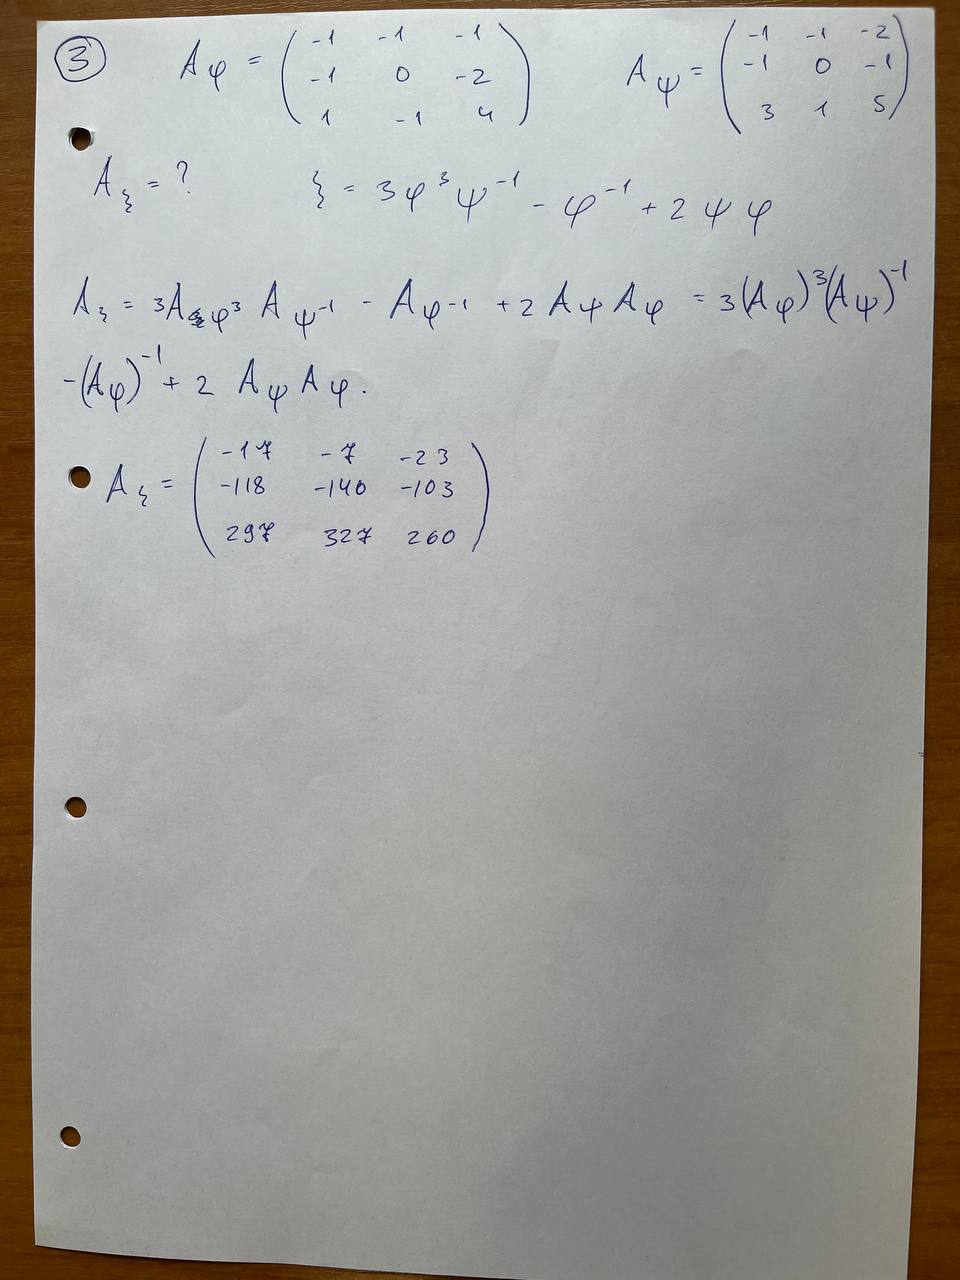 3 Aφ = ( -1 -1 -1 ; -1 0 -2 ; 1 -1 4 ) Aψ = ( -1 -1 -2 ; -1 0 -1 ; 3 1 5 )
Aξ = ? ξ = 3φ³ψ⁻¹ - φ⁻¹ + 2ψφ
Aξ = 3Aφ³ Aψ⁻¹ - Aφ⁻¹ + 2 Aψ Aφ = 3(Aφ)³(Aψ)⁻¹
-(Aφ)⁻¹ + 2 Aψ Aφ.
Aξ = ( -17 -7 -23 ; -118 -140 -103 ; 297 327 260 )